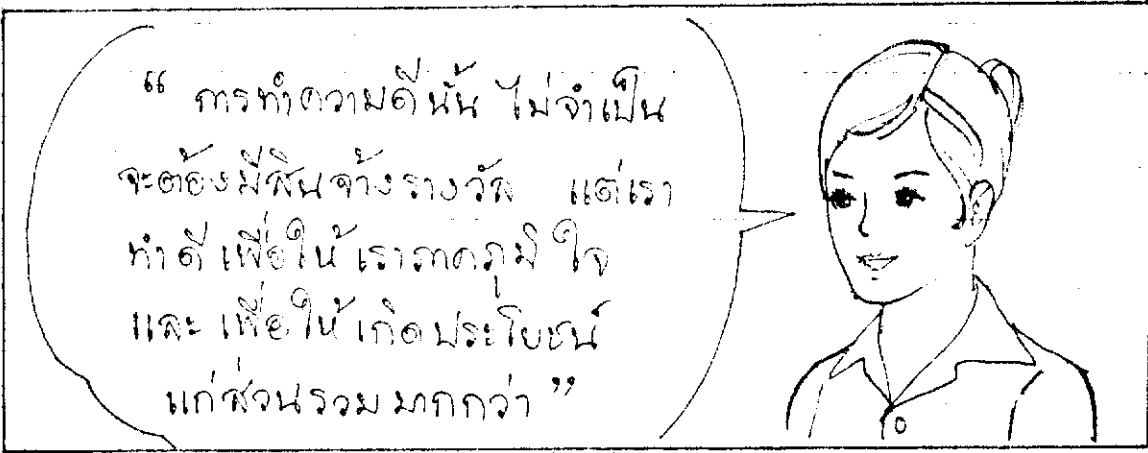 “ การทำความดีนั้น ไม่จำเป็น
จะต้องมีสินจ้างรางวัล แต่เรา
ทำดี เพื่อให้ เราภาคภูมิ ใจ
และ เพื่อให้ เกิดประโยชน์
แก่ส่วนรวม มากกว่า ”